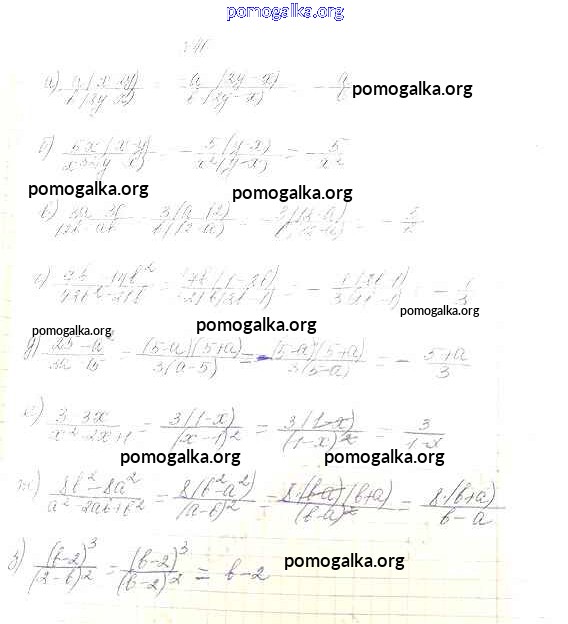 pomogalka.org
а) (x-2y) / (2y-x) = -a (2y-x) / b (2y-x) = - a pomogalka.org
б) 5x (x-y) / x³ (y-x) = - 5 (y-x) / x² (y-x) = - 5 / x²
pomogalka.org pomogalka.org
в) = 3 (a-2) / b (2-a) = - 3 (2-a) / = - 3
г) 7b-14b² / 42b²-21b = 7b (1-2b) / 21b (2b-1) = - = - 1 / 3
pomogalka.org
pomogalka.org pomogalka.org
д) 25-a² / 3a-15 = (5-a)(5+a) / 3(a-5) = - (5-a)(5+a) / 3(5-a) = - 5+a / 3
е) 3-3x / x²-2x+1 = 3(1-x) / (x-1)² = 3(1-x) / (1-x)² = 3 / 1-x
pomogalka.org pomogalka.org
ж) 8b²-8a² / a²-2ab+b² = 8(b²-a²) / (a-b)² = 8·(b-a)(b+a) / (b-a)² = 8·(b+a) / b-a
з) (b-2)³ / (2-b)² = (b-2)³ / (b-2)² = b-2 pomogalka.org